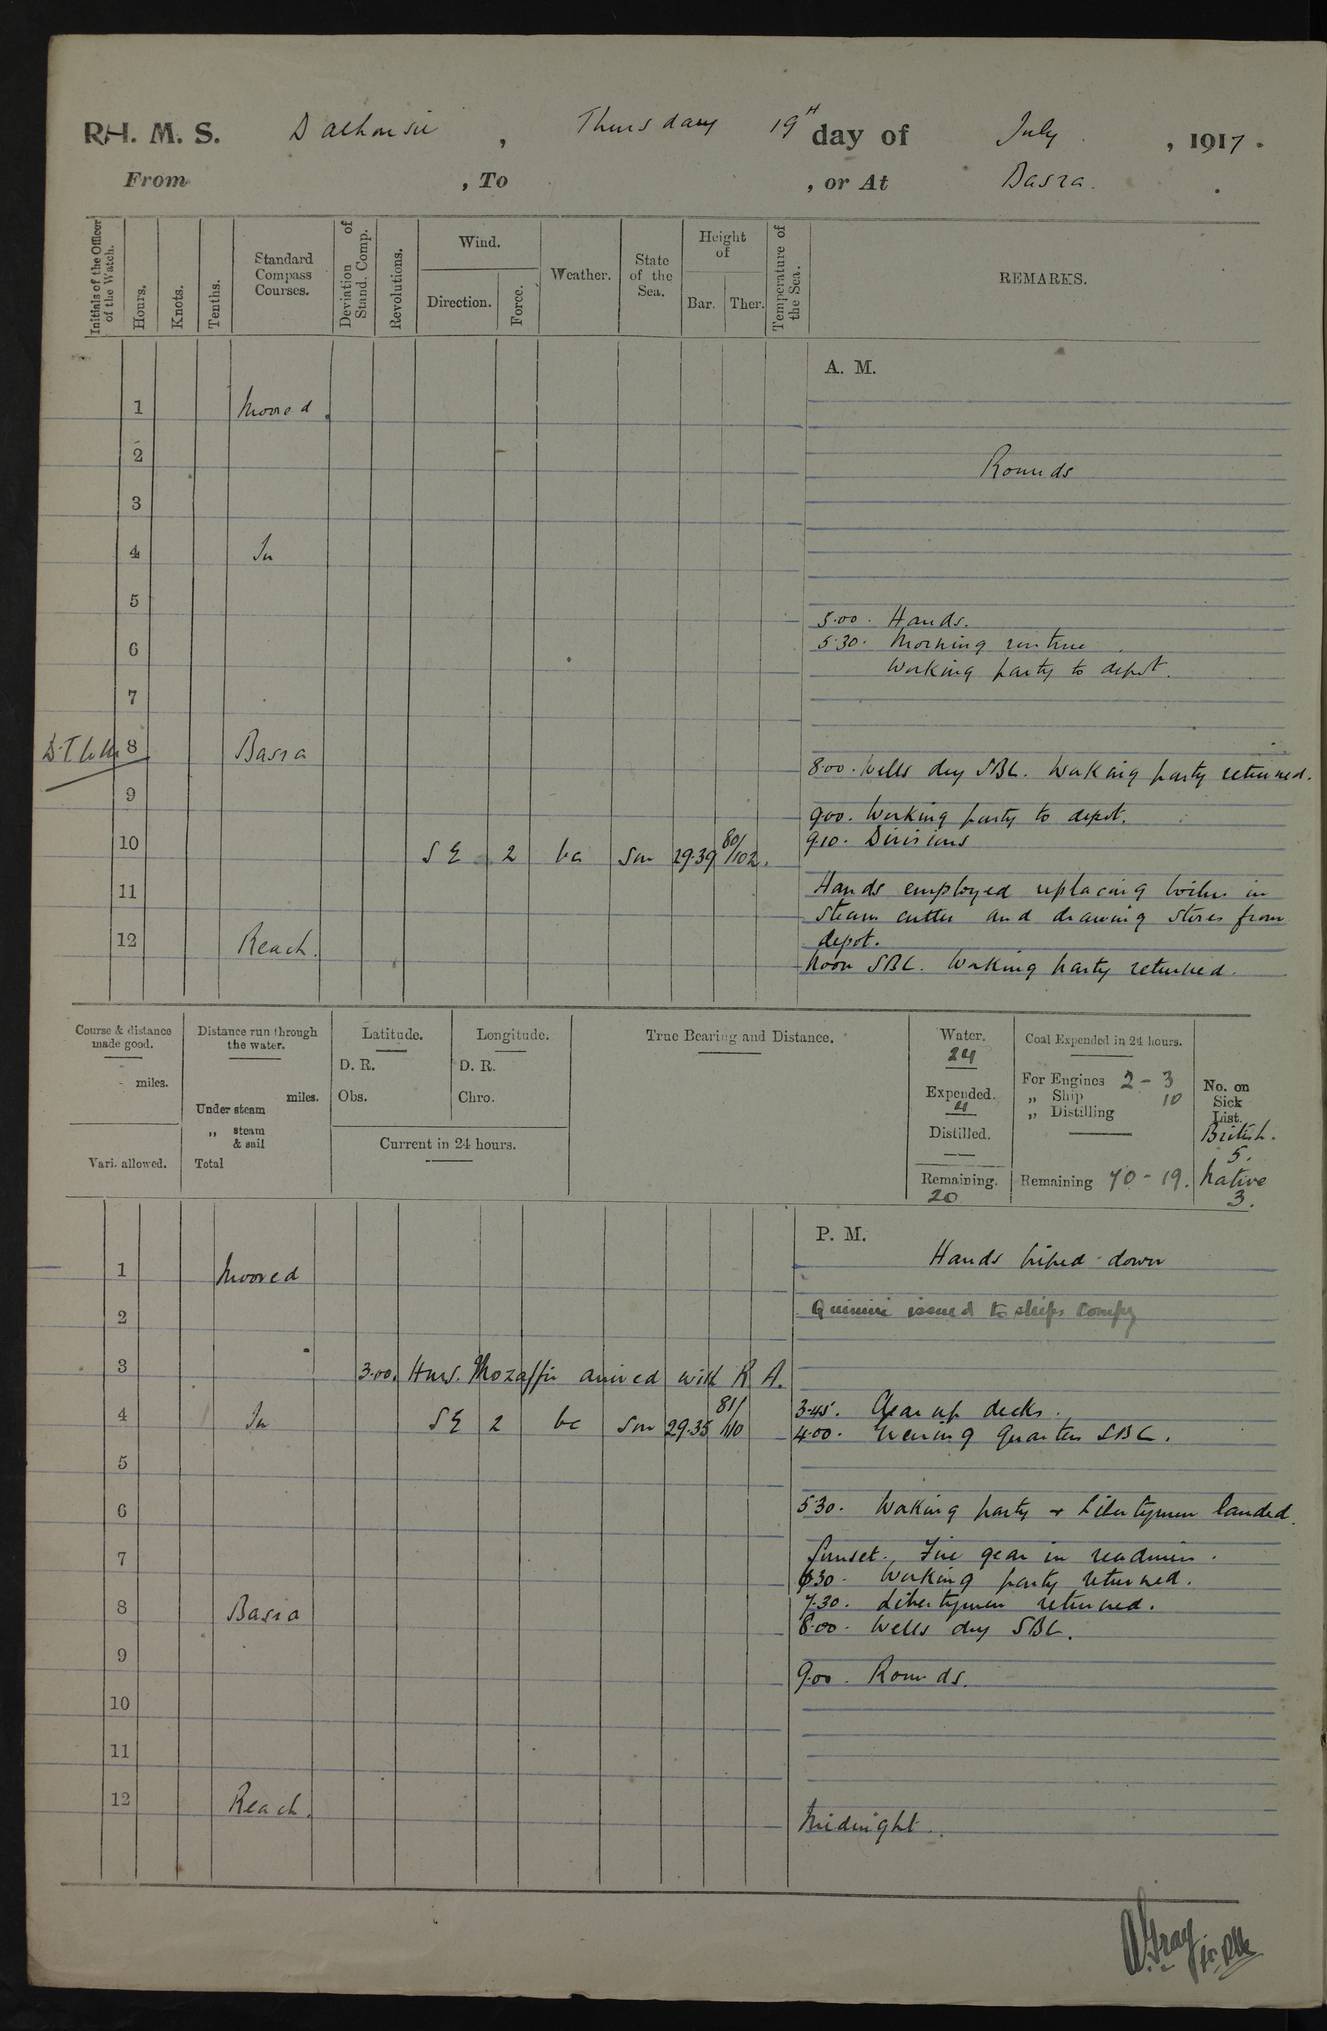 R H. M. S. Dalhousie , Thursday 19H day of July , 1917.
From , To , or At Basra.
Initials of the Officer of the Watch.
Hours.
Knots.
Tenths.
Standard Compass Courses.
Deviation of Stand. Comp.
Revolutions.
Wind.
Direction.
Force.
Weather.
State of the Sea.
Height of
Bar.
Ther.
Temperature of the Sea.
REMARKS.
A. M.
1 Moored.
2 Rounds
3
4 In
5
5.00. Hands.
6 5.30. Morning routine
Working party to depot.
7
8 Basra
8.00. Wells dry SBC. Working party returned.
9
9.00. Working party to depot.
10 SE 2 bc Sm 29.39 80/102. 9.10. Divisions
11 Hands employed replacing boiler in
steam cutter and drawing stores from
12 Reach. depot.
Noon SBC. Working party returned.
Course & distance made good.
miles.
Vari. allowed.
Distance run through the water.
miles.
Under steam
„ steam & sail
Total
Latitude.
D. R.
Obs.
Longitude.
D. R.
Chro.
Current in 24 hours.
True Bearing and Distance.
Water.
24
Expended.
4
Distilled.
Remaining.
20
Coal Expended in 24 hours.
For Engines 2 - 3
„ Ship 10
„ Distilling
Remaining 70 - 19.
No. on Sick List.
British.
5.
Native
3.
P. M.
Hands piped down
1 Moored
2 Quinine issued to ships Compy
3 3.00. H.M.S. Mozaffir arrived with R A.
4 In SE 2 bc Sm 29.35 81/110 3.45. Clear up decks.
4.00. Evening Quarters SBC.
5
6 5.30. Working party & Libertymen landed.
7 Sunset. Fire gear in readiness.
6.30. Working party returned.
8 Basra 7.30. Libertymen returned.
8.00. Wells dry SBC.
9
9.00. Rounds.
10
11
12 Reach.
Midnight.